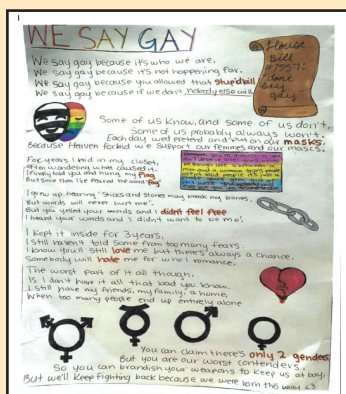 WE SAY GAY
House
Bill
#1557:
"don't
say
gay"
We say gay because it's who we are,
We say gay because it's not happening far.
We say gay because you allowed that stupid bill
We say gay because if we don't, nobody else will
Some of us know, and some of us don't,
Some of us probably always won't.
Each day we'd pretend and put on our masks.
Because Heaven forbid we support our femmes and our mascs.
For years I hid in my closet,
I grew up hearing "Sticks and stones may break my bones,
But words will never hurt me".
But you yelled your words and I didn't feel free
I heard your words and I didn't want to be me.
I kept it inside for 3 years,
I still haven't told some from too many fears.
I know you'll still love me but there's always a chance,
Somebody will hate me for who I romance.
The worst part of it all though,
Is I don't have it all that bad you know.
I still have my friends, my family, a home,
When too many people end up entirely alone
You can claim there's only 2 genders
But you are our worst contenders.
So you can brandish your weapons to keep us at bay,
But we'll keep fighting back because we were born this way <3